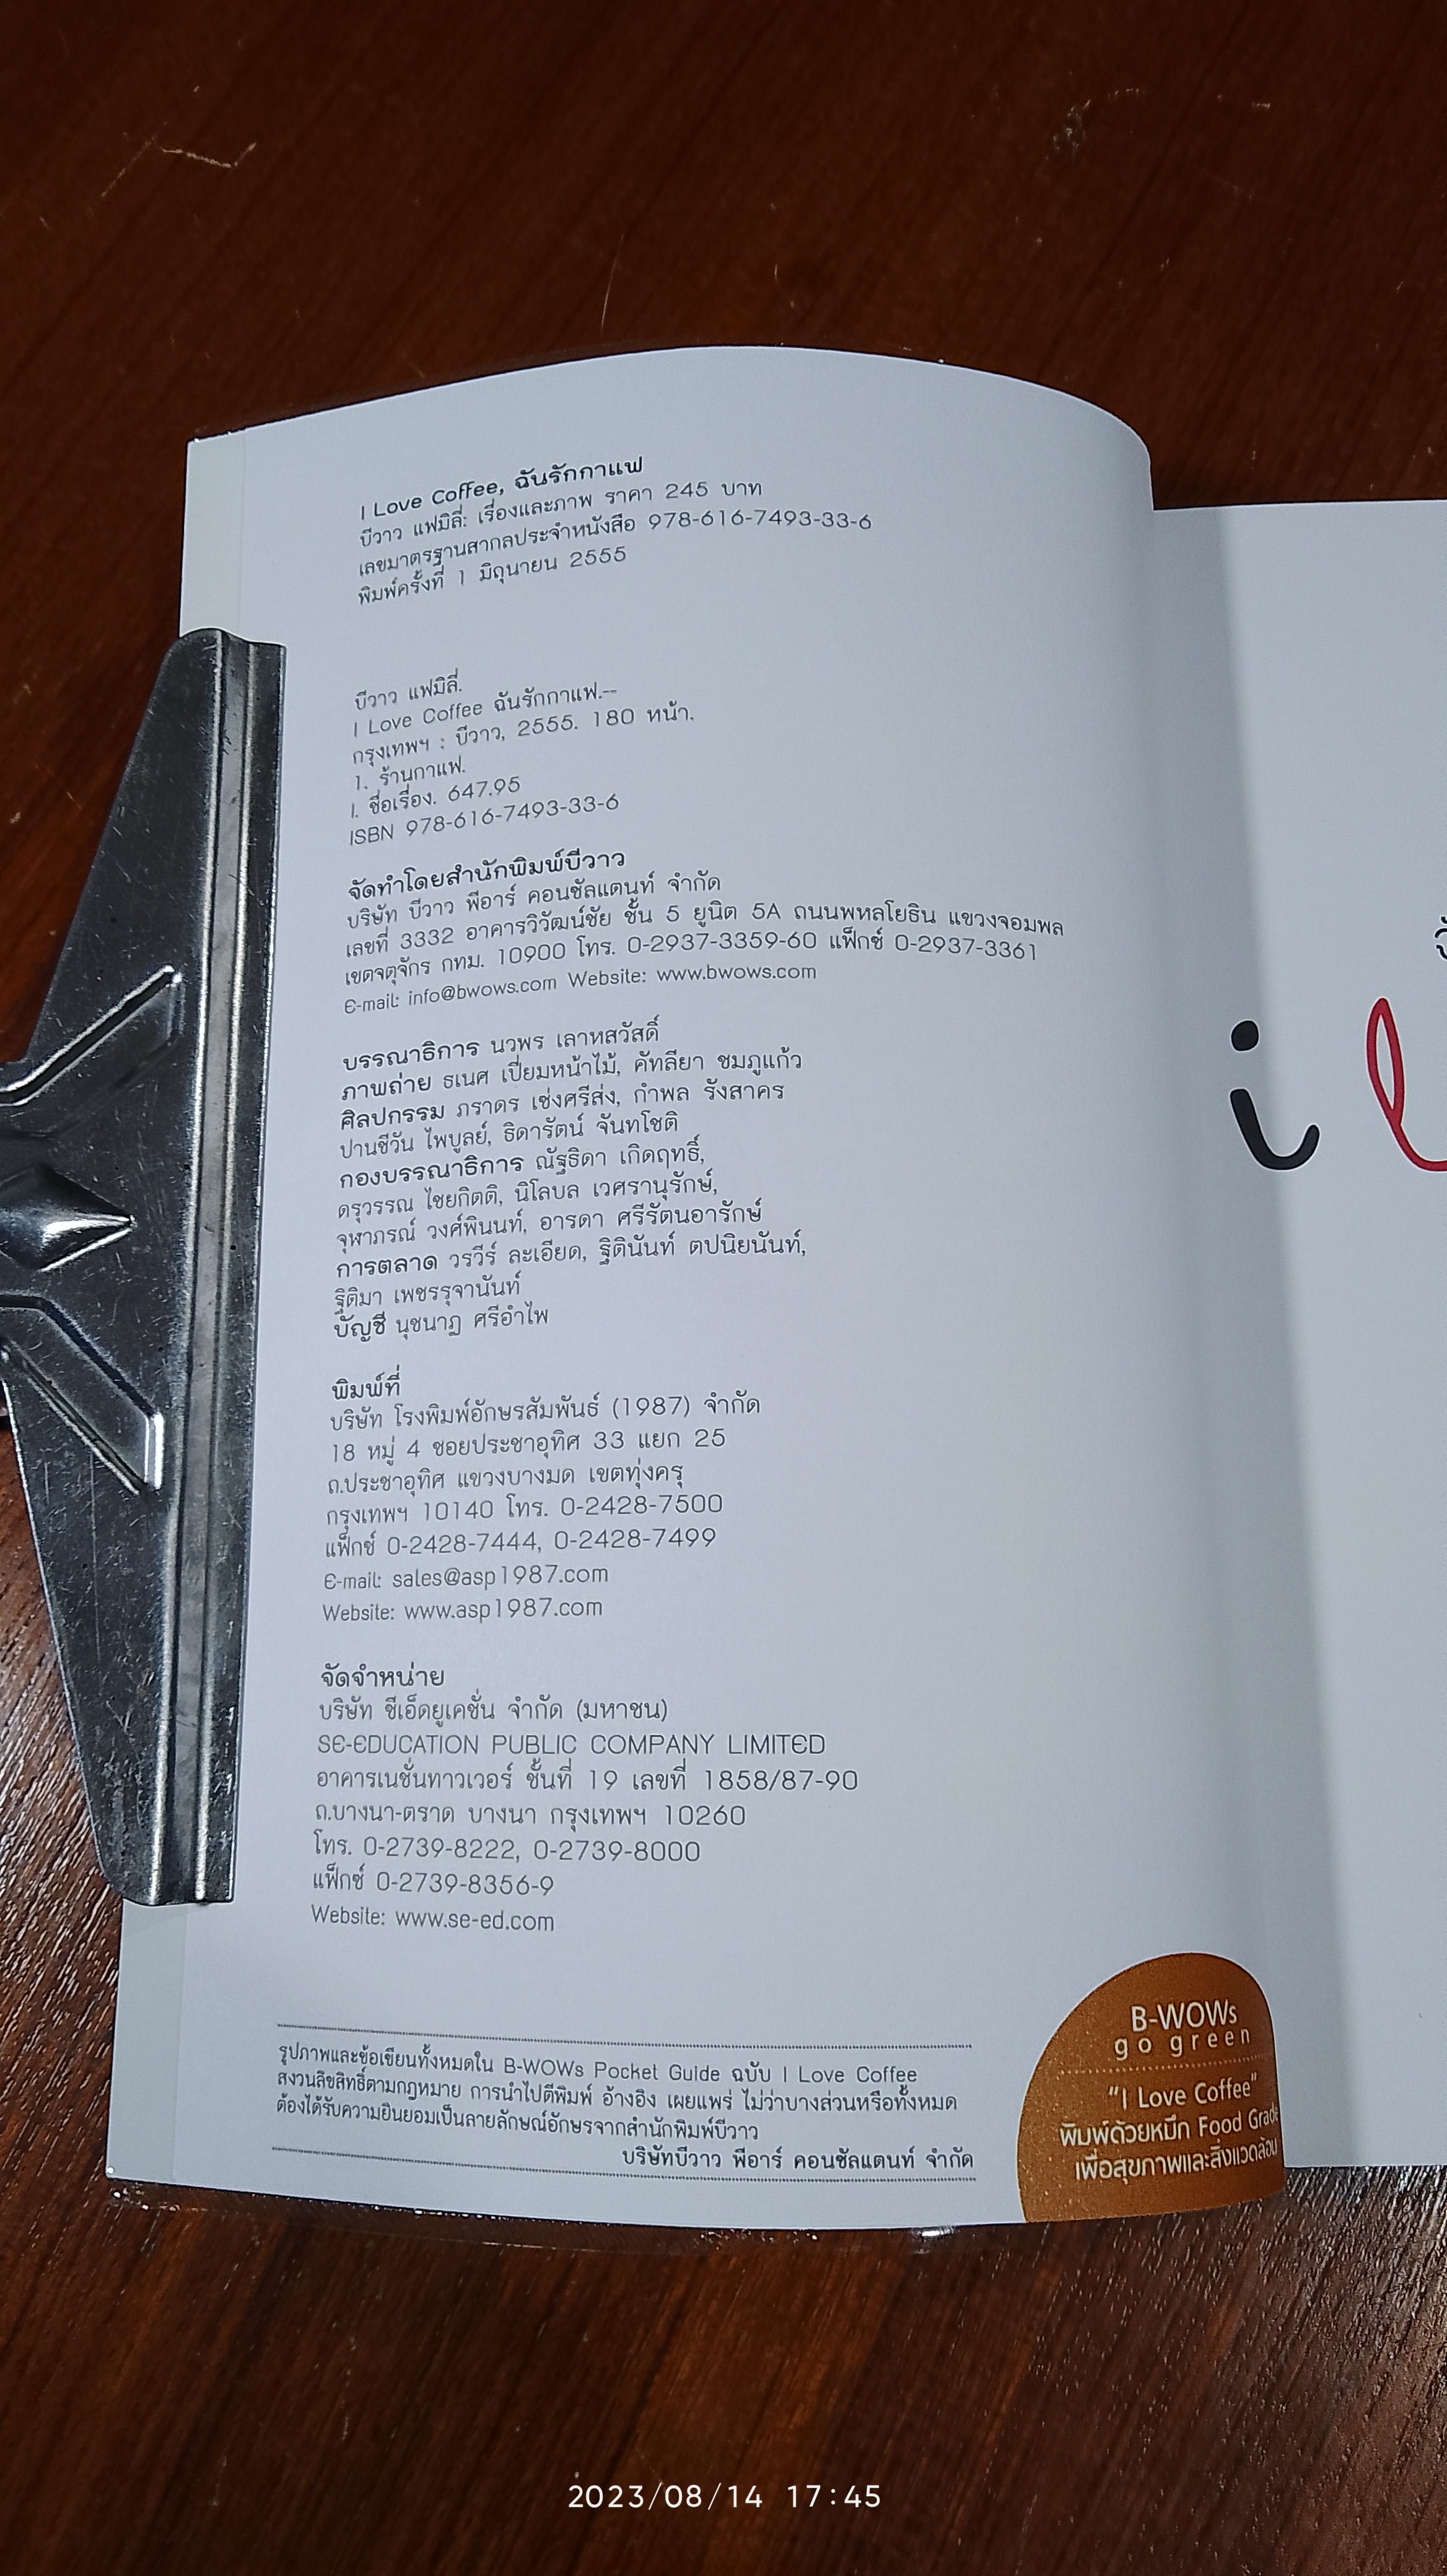 I Love Coffee, ฉันรักกาแฟ
บีวาว แฟมิลี่: เรื่องและภาพ ราคา 245 บาท
เลขมาตรฐานสากลประจำหนังสือ 978-616-7493-33-6
พิมพ์ครั้งที่ 1 มิถุนายน 2555
บีวาว แฟมิลี่.
I Love Coffee ฉันรักกาแฟ.--
กรุงเทพฯ : บีวาว, 2555. 180 หน้า.
1. ร้านกาแฟ.
I. ชื่อเรื่อง. 647.95
ISBN 978-616-7493-33-6
จัดทำโดยสำนักพิมพ์บีวาว
บริษัท บีวาว พีอาร์ คอนซัลแตนท์ จำกัด
เลขที่ 3332 อาคารวิวัฒน์ชัย ชั้น 5 ยูนิต 5A ถนนพหลโยธิน แขวงจอมพล
เขตจตุจักร กทม. 10900 โทร. 0-2937-3359-60 แฟ็กซ์ 0-2937-3361
E-mail: info@bwows.com Website: www.bwows.com
บรรณาธิการ นวพร เลาหสวัสดิ์
ภาพถ่าย ธเนศ เปี่ยมหน้าไม้, คัทลียา ชมภูแก้ว
ศิลปกรรม ภราดร เช่งศรีส่ง, กำพล รังสาคร
ปานชีวัน ไพบูลย์, ธิดารัตน์ จันทโชติ
กองบรรณาธิการ ณัฐธิดา เกิดฤทธิ์,
ดรุวรรณ ไชยกิตติ, นิโลบล เวศรานุรักษ์,
จุฬาภรณ์ วงศ์พินนท์, อารดา ศรีรัตนอารักษ์
การตลาด วรวีร์ ละเอียด, ฐิตินันท์ ตปนิยนันท์,
ฐิติมา เพชรรุจานันท์
บัญชี นุชนาฏ ศรีอำไพ
พิมพ์ที่
บริษัท โรงพิมพ์อักษรสัมพันธ์ (1987) จำกัด
18 หมู่ 4 ซอยประชาอุทิศ 33 แยก 25
ถ.ประชาอุทิศ แขวงบางมด เขตทุ่งครุ
กรุงเทพฯ 10140 โทร. 0-2428-7500
แฟ็กซ์ 0-2428-7444, 0-2428-7499
E-mail: sales@asp1987.com
Website: www.asp1987.com
จัดจำหน่าย
บริษัท ซีเอ็ดยูเคชั่น จำกัด (มหาชน)
SE-EDUCATION PUBLIC COMPANY LIMITED
อาคารเนชั่นทาวเวอร์ ชั้นที่ 19 เลขที่ 1858/87-90
ถ.บางนา-ตราด บางนา กรุงเทพฯ 10260
โทร. 0-2739-8222, 0-2739-8000
แฟ็กซ์ 0-2739-8356-9
Website: www.se-ed.com
รูปภาพและข้อเขียนทั้งหมดใน B-WOWs Pocket Guide ฉบับ I Love Coffee
สงวนลิขสิทธิ์ตามกฎหมาย การนำไปตีพิมพ์ อ้างอิง เผยแพร่ ไม่ว่าบางส่วนหรือทั้งหมด
ต้องได้รับความยินยอมเป็นลายลักษณ์อักษรจากสำนักพิมพ์บีวาว
บริษัทบีวาว พีอาร์ คอนซัลแตนท์ จำกัด
B-WOWs
go green
"I Love Coffee"
พิมพ์ด้วยหมึก Food Grade
เพื่อสุขภาพและสิ่งแวดล้อม
i l
2023/08/14 17:45